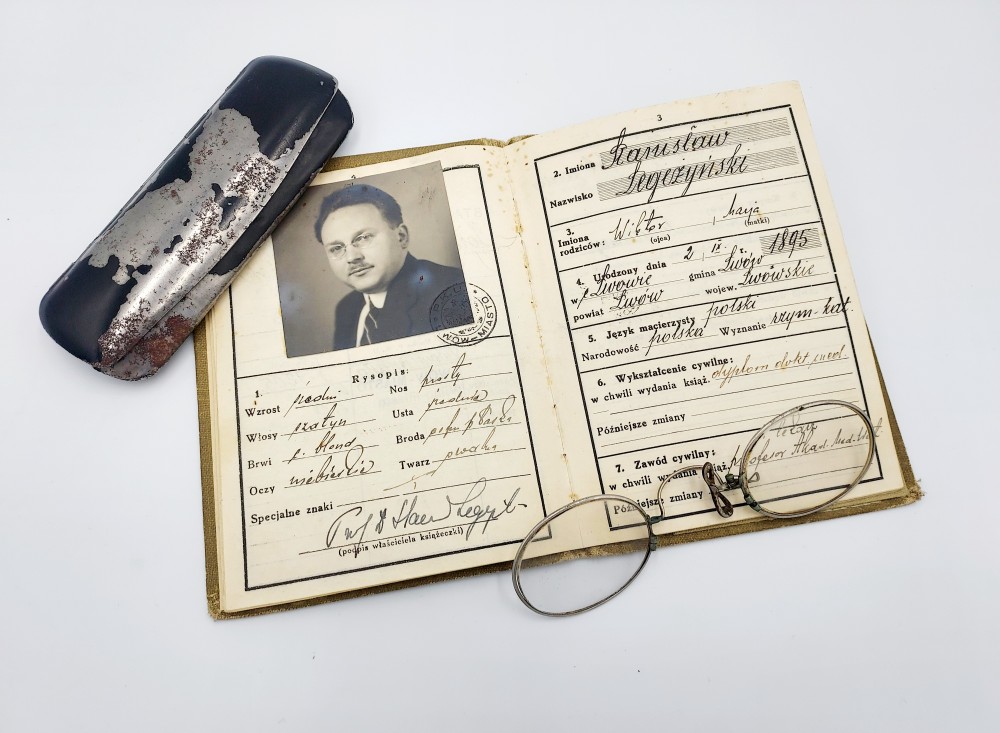 LWÓW-MIASTO
Rysopis:
1.
Wzrost średni Nos prosty
Włosy szatyn Usta średnie
Brwi c. blond Broda
Oczy niebieskie Twarz owalna
Specjalne znaki
Prof Dr
(podpis właściciela książeczki)
3
2. Imiona Stanisław
Nazwisko Legeżyński
3.
Imiona
rodziców: Wiktor , Marja
(ojca) (matki)
4. Urodzony dnia 2 IX. r. 1895
w Lwowie gmina Lwów
powiat Lwów wojew. Lwowskie
5. Język macierzysty polski
Narodowość polska Wyznanie rzym-kat.
6. Wykształcenie cywilne:
w chwili wydania książ. dyplom dokt. med.
Późniejsze zmiany
7. Zawód cywilny:
w chwili wydania książ. profesor Akad. Med. Wet
Późniejsze zmiany